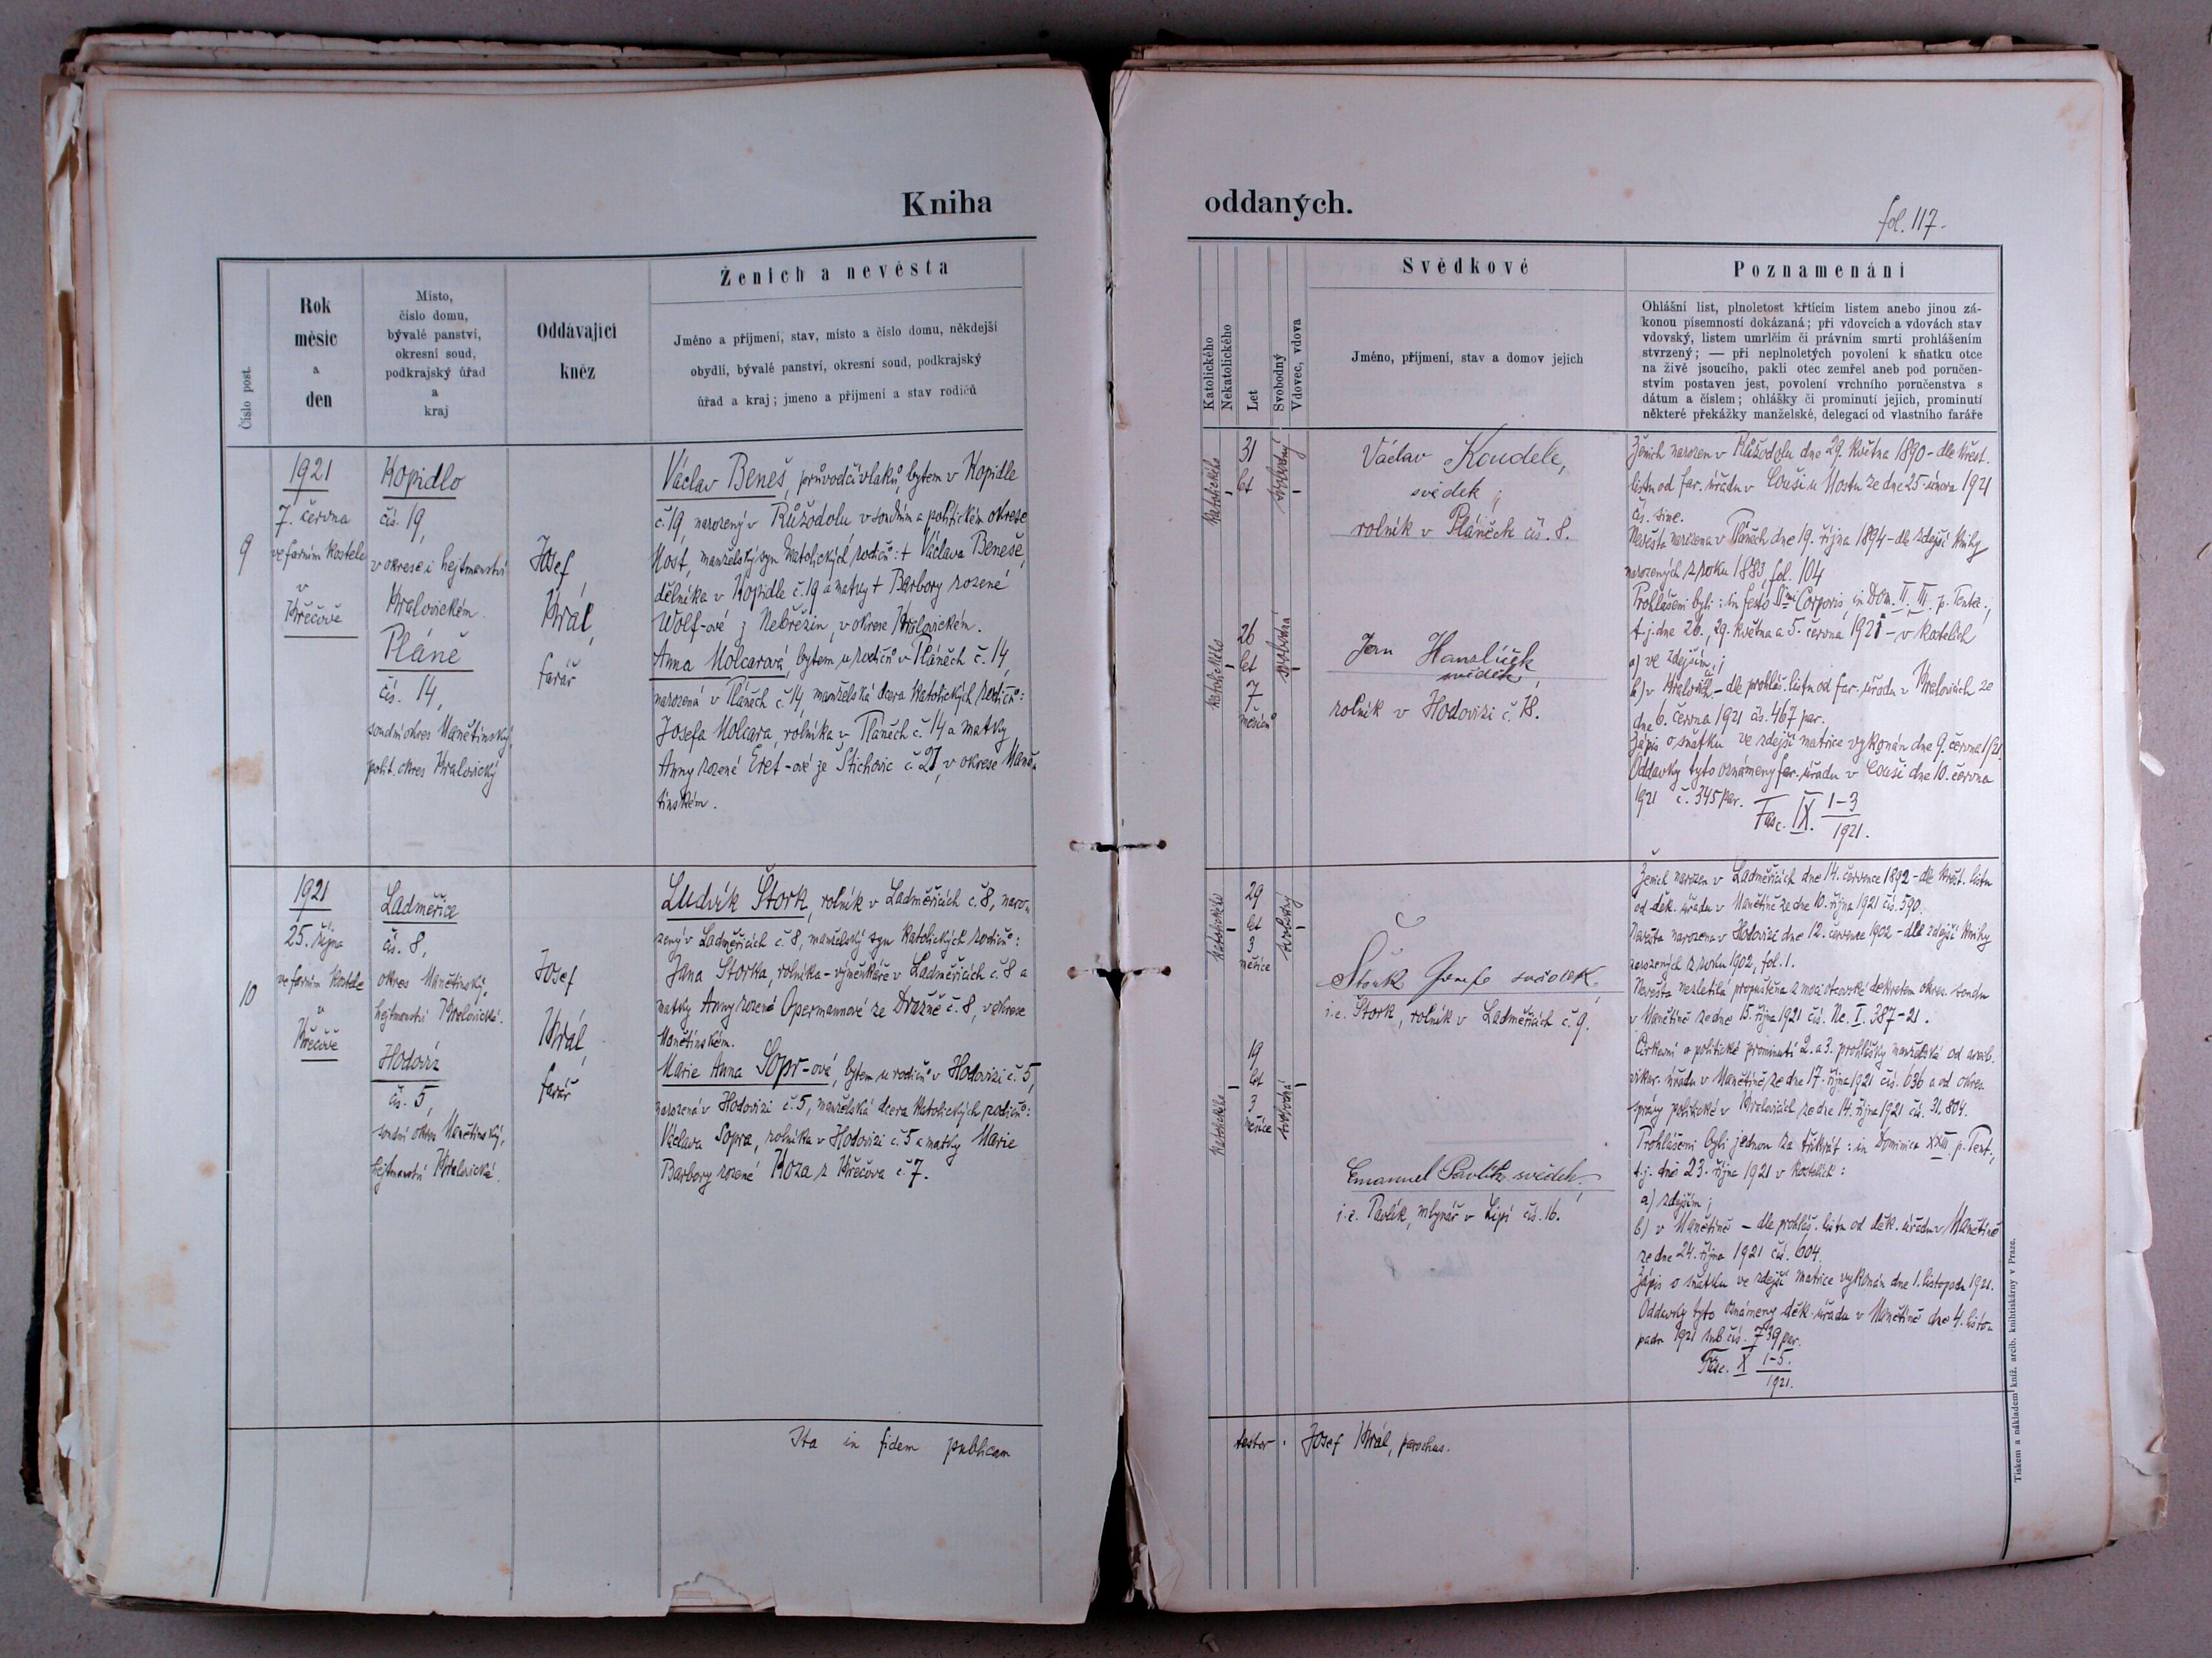 Kniha
oddaných.
fol. 117.
Číslo post.
Rok
měsíc
a
den
Místo,
číslo domu,
bývalé panství,
okresní soud,
podkrajský úřad
a
kraj
Oddávající
kněz
Ženich a nevěsta
Jméno a příjmení, stav, místo a číslo domu, někdejší
obydlí, bývalé panství, okresní soud, podkrajský
úřad a kraj; jmeno a příjmení a stav rodičů
Katolického
Nekatolického
Let
Svobodný
Vdovec, vdova
Svědkové
Jméno, příjmení, stav a domov jejich
Poznamenání
Ohlášní list, plnoletost křticím listem anebo jinou zá-
konou písemností dokázaná; při vdovcích a vdovách stav
vdovský, listem umrlčím či právním smrti prohlášením
stvrzený; — při neplnoletých povolení k sňatku otce
na živě jsoucího, pakli otec zemřel aneb pod poručen-
stvím postaven jest, povolení vrchního poručenstva s
dátum a číslem; ohlášky či prominutí jejich, prominutí
některé překážky manželské, delegací od vlastního faráře
9
1921
7. června
ve farním kostele
v
Křečově
Kopidlo
čís. 19,
v okrese i hejtmanství
Kralovickém.
Pláně
čís. 14,
soudní okres Manětínský,
polit. okres Kralovický
Josef
Král,
farář
Václav Beneš, průvodčí vlaků, bytem v Kopidle
č. 19, narozený v Růžodolu v soudním a politickém okrese
Most, manželský syn katolických rodičů: + Václava Beneše,
dělníka v Kopidle č. 19 a matky + Barbory rozené
Wolf-ové z Nebřezin, v okrese Kralovickém.
Anna Molcarová, bytem u rodičů v Pláních č. 14,
narozená v Pláních č. 14, manželská dcera katolických rodičů:
Josefa Molcara, rolníka v Pláních č. 14 a matky
Anny rozené Eret-ové ze Štichovic č. 21, v okrese Maně-
tínském.
katolického
31
let
svobodný
katolického
26
let
7
měsíců
svobodná
Václav Koudele,
svědek;
rolník v Pláních čís. 8.
Jan Hanzlíček
svědek,
rolník v Hodovizi č. 18.
Ženich narozen v Růžodolu dne 29. května 1890 - dle křest.
listu od far. úřadu v Couši u Mostu ze dne 25. února 1921
čís. sine.
Nevěsta narozena v Pláních dne 19. října 1894 - dle zdejší knihy
narozených z roku 1883, fol. 104
Prohlášeni byli: in festo Corporis, in Dom. II. III. p. Tente.,
t. j. dne 26., 29. května a 5. června 1921 - v kostelích
a) ve zdejším;
b) v Kralovicích - dle prohláš. listu od far. úřadu v Kralovicích ze
dne 6. června 1921 čís. 467 par.
Zápis o sňatku ve zdejší matrice vykonán dne 9. června 1921
Oddavky tyto oznámeny far. úřadu v Couši dne 10. června
1921 č. 345 par.
Fasc. IX. 1-3
1921.
10
1921
25. října
ve farním kostele
v
Křečově
Ladměřice
čís. 8,
okres Manětínský,
hejtmanství Kralovické.
Hodovíz
čís. 5,
soudní okres Manětínský,
hejtmanství Kralovické.
Josef
Král,
farář
Ludvík Štork, rolník v Ladměřicích č. 8, naro-
zený v Ladměřicích č. 8, manželský syn katolických rodičů:
Jana Štorka, rolníka - výměnkáře v Ladměřicích č. 8 a
matky Anny rozené Opermannové ze Dražně č. 8, v okrese
Manětínském.
Marie Anna Sopr-ová, bytem u rodičů v Hodovizi č. 5,
narozená v Hodovizi č. 5, manželská dcera katolických rodičů:
Václava Sopra, rolníka v Hodovizi č. 5 a matky Marie
Barbory rozené Koza z Křečova č. 7.
katolického
29
let
3
měsíce
svobodný
katolického
19
let
3
měsíce
svobodná
Štork Josef svědek.
i. e. Štork, rolník v Ladměřicích č. 9.
Emanuel Pavlík svědek.
i. e. Pavlík, mlynář v Lipí čís. 16.
Ženich narozen v Ladměřicích dne 14. července 1892 - dle křest. listu
od děk. úřadu v Manětíně ze dne 10. října 1921 čís. 590.
Nevěsta narozena v Hodovizi dne 12. července 1902 - dle zdejší knihy
narozených z roku 1902, fol. 1.
Nevěsta nezletilá propuštěna z moci otcovské dekretem okres. soudu
v Manětíně ze dne 15. října 1921 čís. Nc. I. 387-21.
Církevní a politické prominutí 2. a 3. prohlášky manželské od arcib.
vikar. úřadu v Manětíně ze dne 17. října 1921 čís. 636 a od okres.
správy politické v Kralovicích ze dne 14. října 1921 čís. 31.804.
Prohlášeni byli jednou za třikrát: in Dominica XXIII. p. Tent.,
t. j. dne 23. října 1921 v kostelích:
a) zdejším;
b) v Manětíně - dle prohláš. listu od děk. úřadu v Manětíně
ze dne 24. října 1921 čís. 604.
Zápis o sňatku ve zdejší matrice vykonán dne 1. listopadu 1921.
Oddavky tyto oznámeny děk. úřadu v Manětíně dne 4. listo-
padu 1921 sub čís. 739 par.
Fasc. X 1-5.
1921.
Ita in fidem publicam
testor: Josef Král, parochus.
Tiskem a nákladem kníž. arcib. knihtiskárny v Praze.